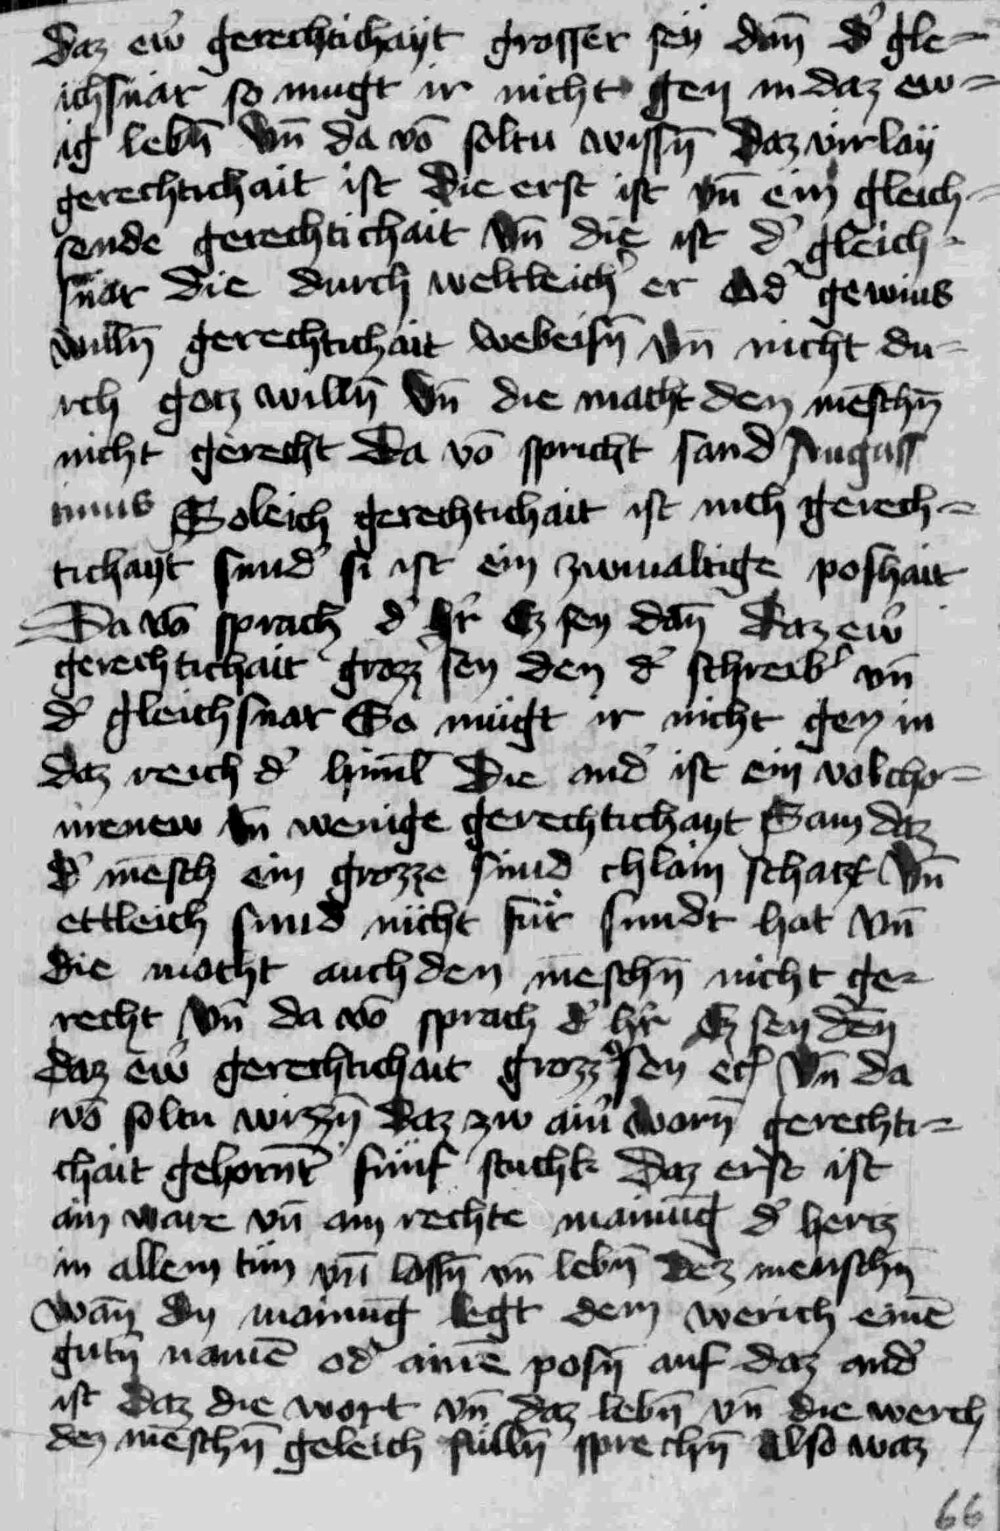 Daz ew̓ gerechtichayt grosser seÿ dan̄ d̓ gle=
ichsnar so mugt ir nicht gen in daz ew=
ig lebn̄ Vn̄ da vō soltu wissn̄ Daz virlaÿ
gerechtichait ist Die erst ist vn̄ ein gleich=
sende gerechtichait Vn̄ die ist d̓ gleich=
snar die durch weltleich̓ er Od̓ gewins
willn̄ gerechtichait webeisn̄ Vn̄ nicht du=
rch gotz willn̄ Vn̄ die macht den mēschn̄
nicht gerecht Da vō spricht sand Augus
tinus Soleich gerechtichait ist nich gerech=
tichaÿt sund̓ si ist ein zwiualtige poshait
Da vō sprach d̓ hr̄ Ez sey dan̄ Daz ew̓
gerechtichait grozz̓ sey den d̓ schreib̓ vn̄
d̓ gleichsnar So mügt ir nicht gen in
daz reich d̓ himl̄ Die and̓ ist ein volcho=
menew Vn̄ wenige gerechtichayt Sam daz
d̓ mēsch ein grozze sund chlain schatzt Vn̄
ettleich sund nicht für sundt hat Vn̄
die macht auch den mēschn̄ nicht ge=
recht Vn̄ da vō sprach d̓ hr̄ Ez sey den̄
daz ew̓ gerechtichait grozz̓ sey etc̄ Vn̄ da
vō soltu wizzn̄ Daz zw ain̓ warn̄ gerechti=
chait gehornt̄ fünf stuchk Daz erst ist
ain ware vn̄ ain rechte mainūg d̓ hertz
in allem tün vn̄ lassn̄ vn̄ lebn̄ dez menschn̄
wan̄ dy mainūg legt dem werich einē
gutn̄ namē od̓ ainē posn̄ auf daz and̓
ist daz die wort vn̄ daz lebn̄ vn̄ die werch
dez mēschn̄ geleich sülln̄ sprechn̄ also waz
66